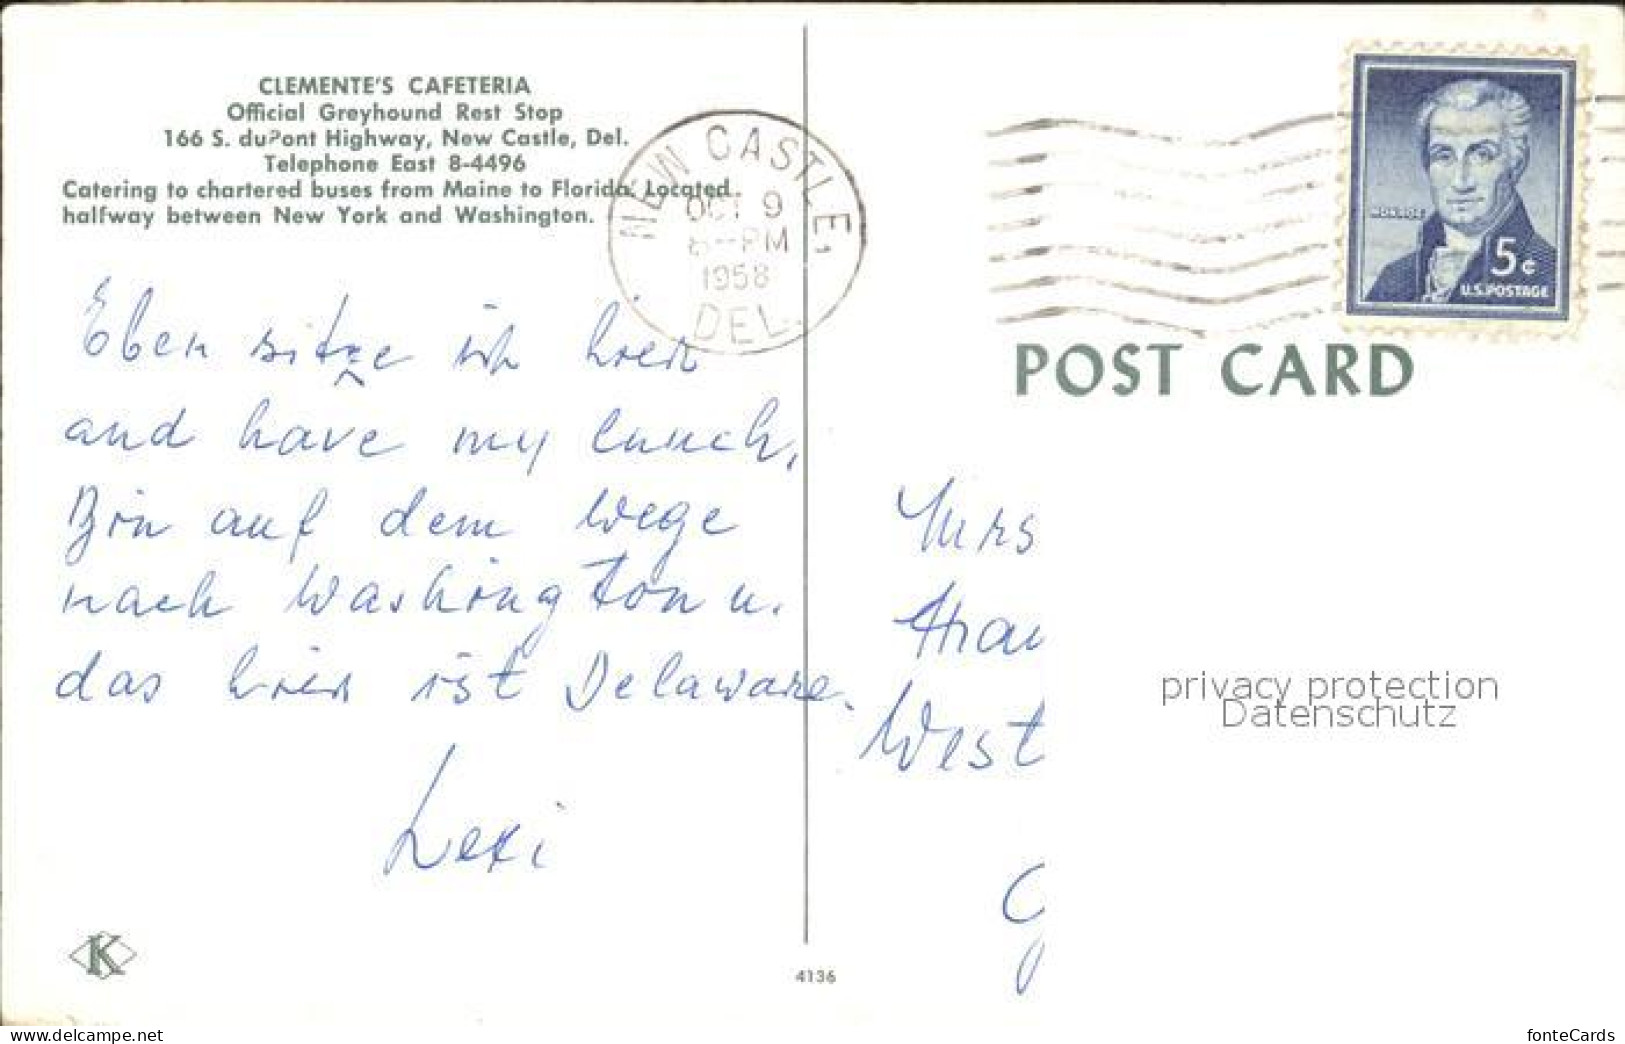 CLEMENTE'S CAFETERIA
Official Greyhound Rest Stop
166 S. duPont Highway, New Castle, Del.
Telephone East 8-4496
Catering to chartered buses from Maine to Florida. Located
halfway between New York and Washington.
NEW CASTLE,
OCT 9
PM
1958
DEL.
MONROE
5¢
U.S. POSTAGE
POST CARD
Eben sitze ich hier
and have my lunch,
Bin auf dem Wege
nach Washington u.
das hier ist Delaware.
Lexi
Mrs
West
privacy protection
Datenschutz
K
4136
www.delcampe.net
fonteCards